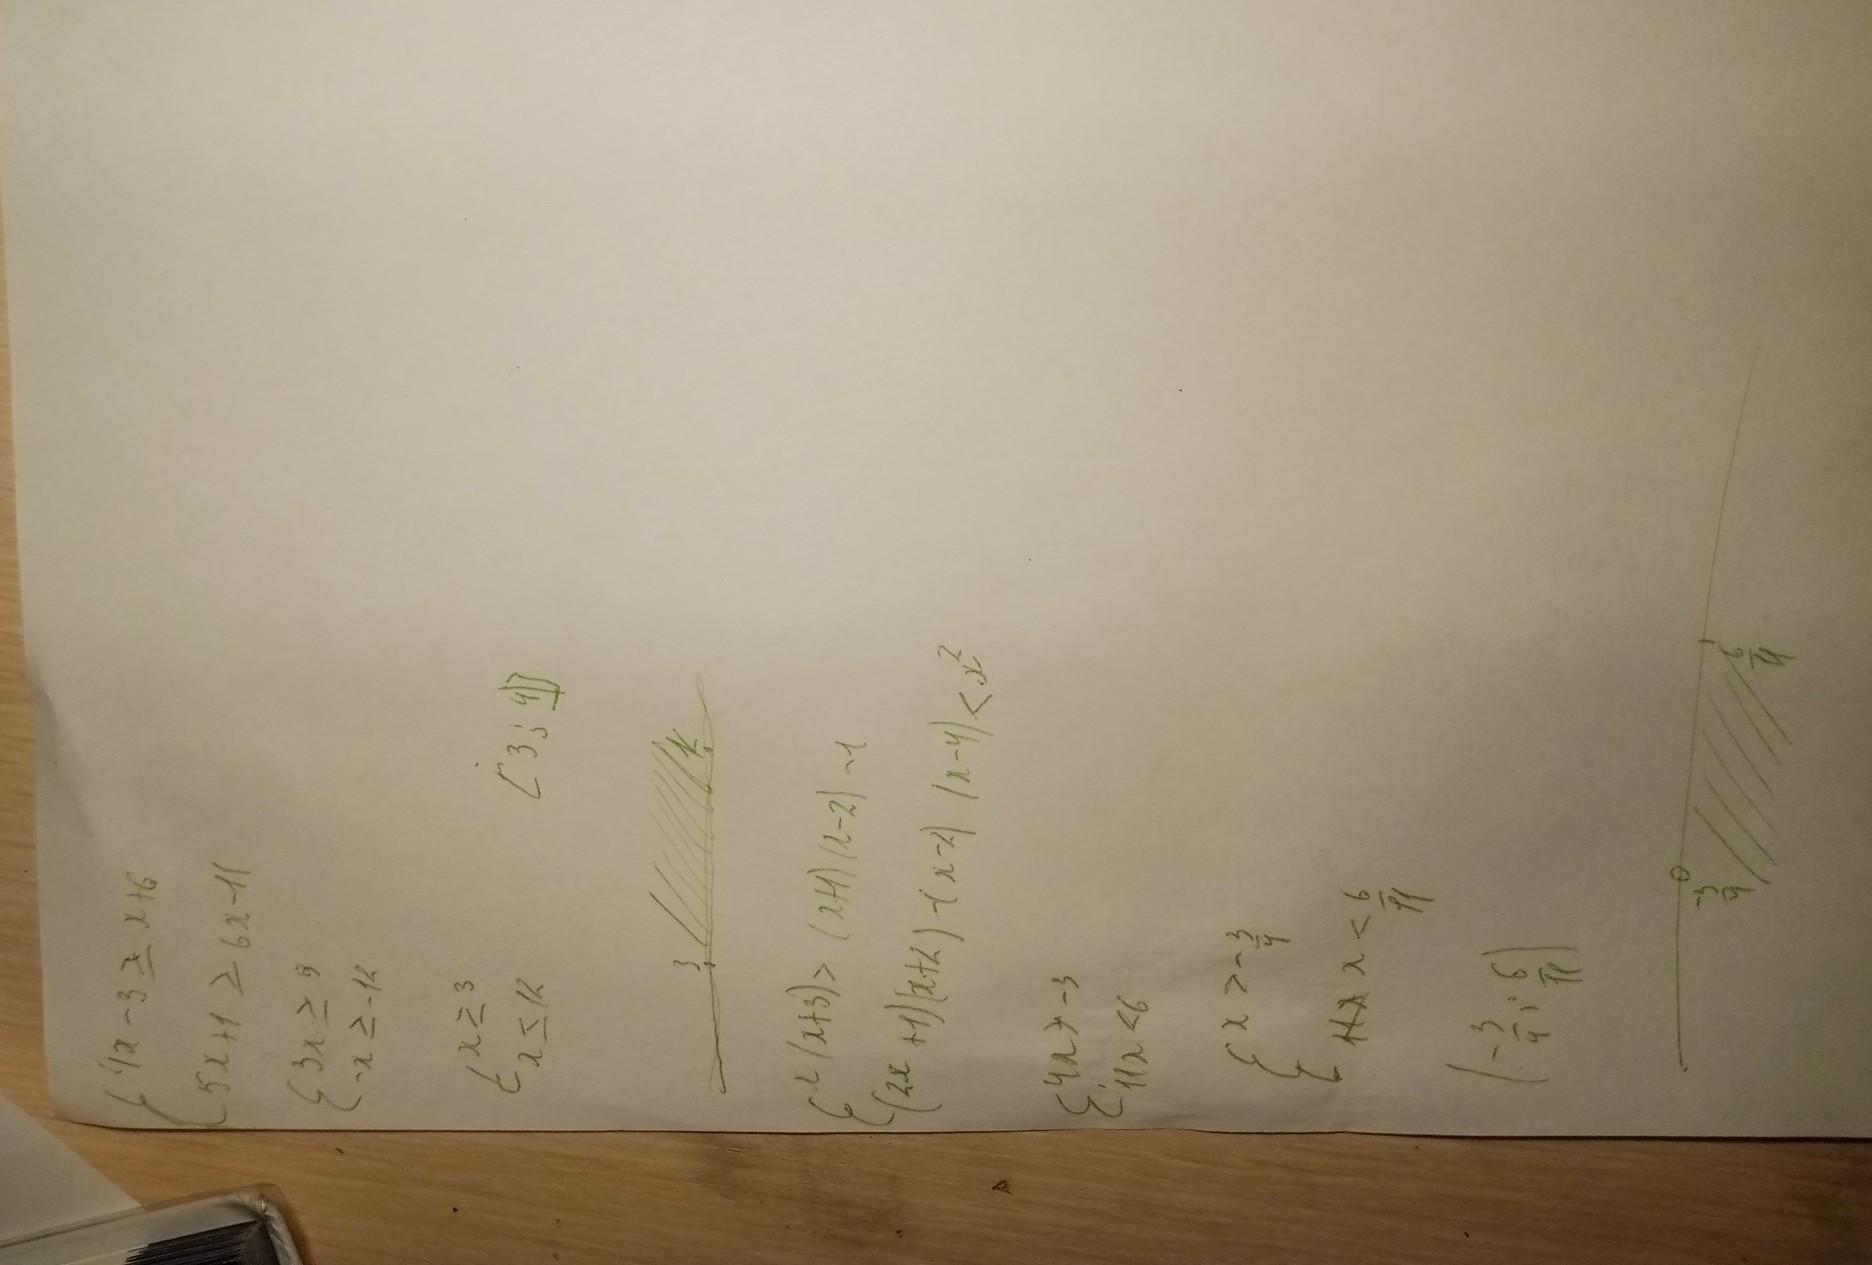 { 4x - 3 ≥ x+6
5x+1 ≥ 6x-11
{ 3x ≥ 9
-x ≥ -12
{ x ≥ 3
x ≤ 12
[3;
3 12
{ x(x+3) > (x+1)(x-2) - 1
(2x+1)(x+2) - (x-2)(x-4) < x²
{ 4x > -3
11x < 6
{ x > -3/4
x < 6/11
(-3/4; 6/11)
-3/4 6/11